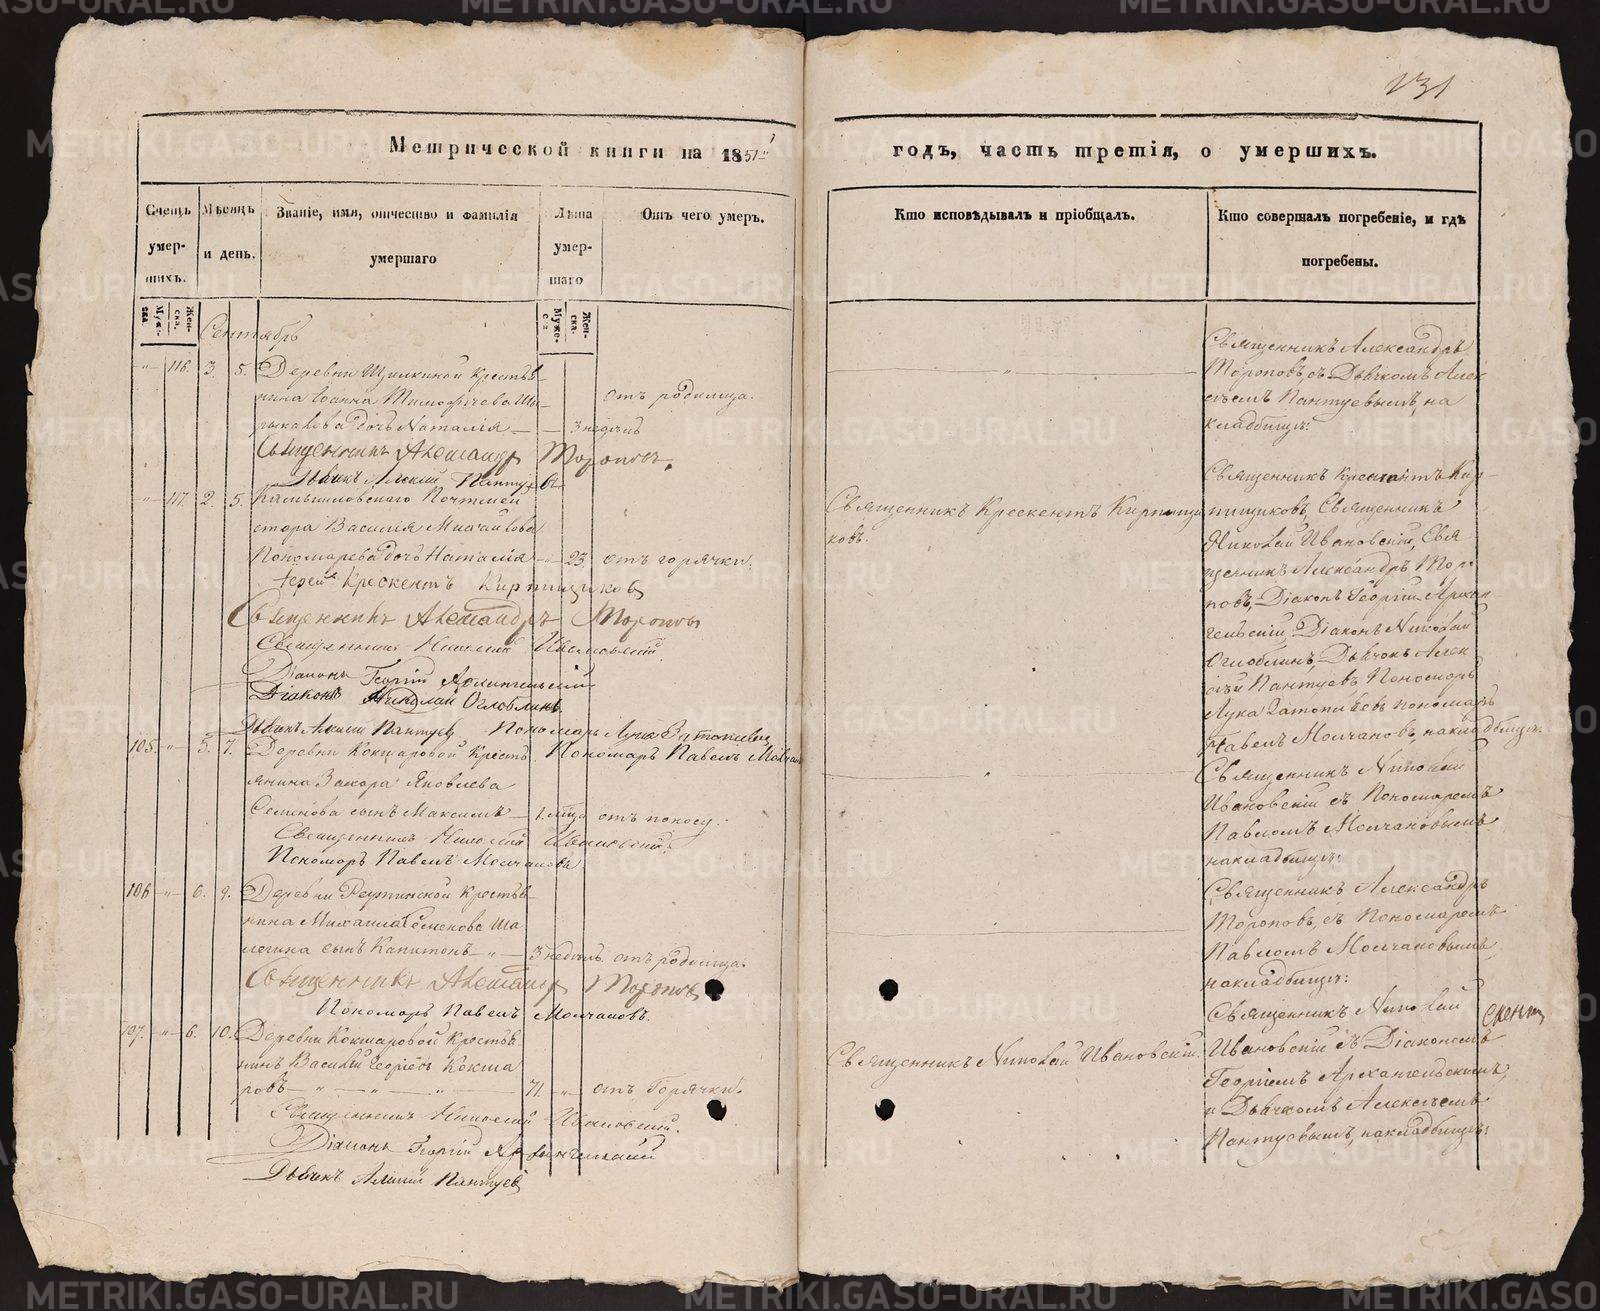 131
Метрической книги на 1851й
годъ, часть третія, о умершихъ.
Счетъ умер- шихъ.
Мѣсяцъ и день.
Званіе, имя, отчество и фамилія умершаго
Лѣта умер- шаго
Отъ чего умеръ.
Кто исповѣдывалъ и пріобщалъ.
Кто совершалъ погребеніе, и гдѣ погребены.
Муже- ска.
Жен- ска.
Муже- ска
Жен- ска.
Сентябрь
116. 3. 5. Деревни Крестья-
нина Іоанна Тимофѣева
дочь Наталія — 3 недѣль
отъ родимца.
Священникъ Александръ Тороповъ.
Дьячекъ Алексій Пантуев
Священникъ Александръ
Тороповъ, съ Дьячкомъ Алек
сѣемъ Пантуевымъ, на
кладбищѣ.
117. 2. 5. Камышловскаго Почтмей
стера Василія Михайлова
Пономарева дочь Наталія — 23 отъ горячки.
Іерей Крескентъ Кирпищиковъ
Священникъ Александръ Тороповъ
Священникъ Николай Ивановскій.
Діаконъ Георгій Архангельскій
Діаконъ Николай Оглоблинъ.
Дьячекъ Алексій Пантуев Пономарь Лука Затопляевъ
Пономарь Павелъ Молчан
Священникъ Крескентъ Кирпищи
ковъ.
Священникъ Крескентъ Кир-
пищиковъ, Священникъ
Николай Ивановскій, Свя
щенникъ Александръ Торо
повъ, Діаконъ Георгій Архан-
гельскій, Діаконъ Николай
Оглоблинъ, Дьячокъ Алек
сѣй Пантуевъ, Пономарь
Лука Затопляевъ пономарь
Павелъ Молчановъ, на кладбищѣ.
105. 5. 7. Деревни Кокшаровой Кресть
янина Захара Яковлева
Семенова сынъ Максимъ — 1. мѣца отъ поносу.
Священникъ Николай Ивановскій.
Пономарь Павелъ Молчановъ
Священникъ Николай
Ивановскій съ Пономаремъ
Павломъ Молчановымъ
на кладбищѣ.
106 6. 9. Деревни Реутинской Крестья
нина Михаила Семенова Ша
легина сынъ Капитонъ — 3 недѣль. отъ родимца.
Священникъ Александръ Тороповъ
Пономарь Павелъ Молчановъ.
Священникъ Александръ
Тороповъ, съ Пономаремъ
Павломъ Молчановымъ,
на кладбищѣ:
107. 6. 10. Деревни Кокшаровой Крестья
нинъ Василій Георгіевъ Кокша
ровъ 71. отъ Горячки.
Священникъ Николай Ивановскій.
Діаконъ Георгій Архангельскій
Дьячекъ Алексій Пантуев
Священникъ Николай Ивановскій.
Священникъ Николай
Ивановскій съ Діакономъ
Георгіемъ Архангельскимъ,
и Дьячкомъ Алексѣемъ
Пантуевымъ, на кладбищѣ: